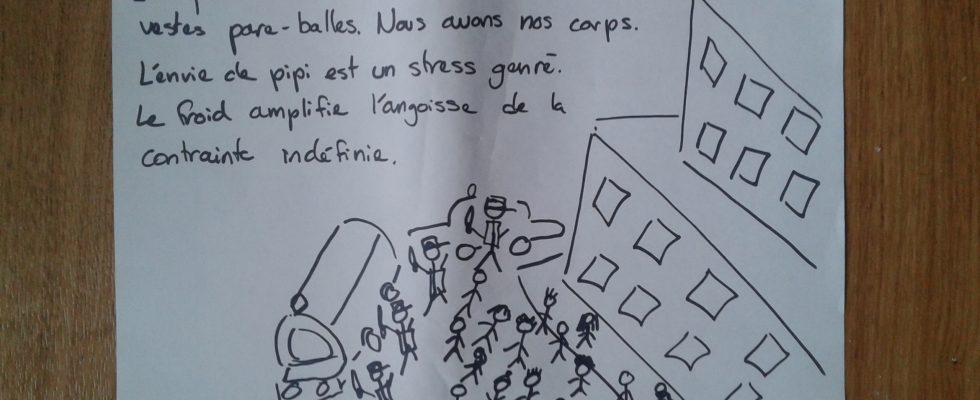 vestes pare-balles. Nous avons nos corps.
L'envie de pipi est un stress genré.
Le froid amplifie l'angoisse de la
contrainte indéfinie.